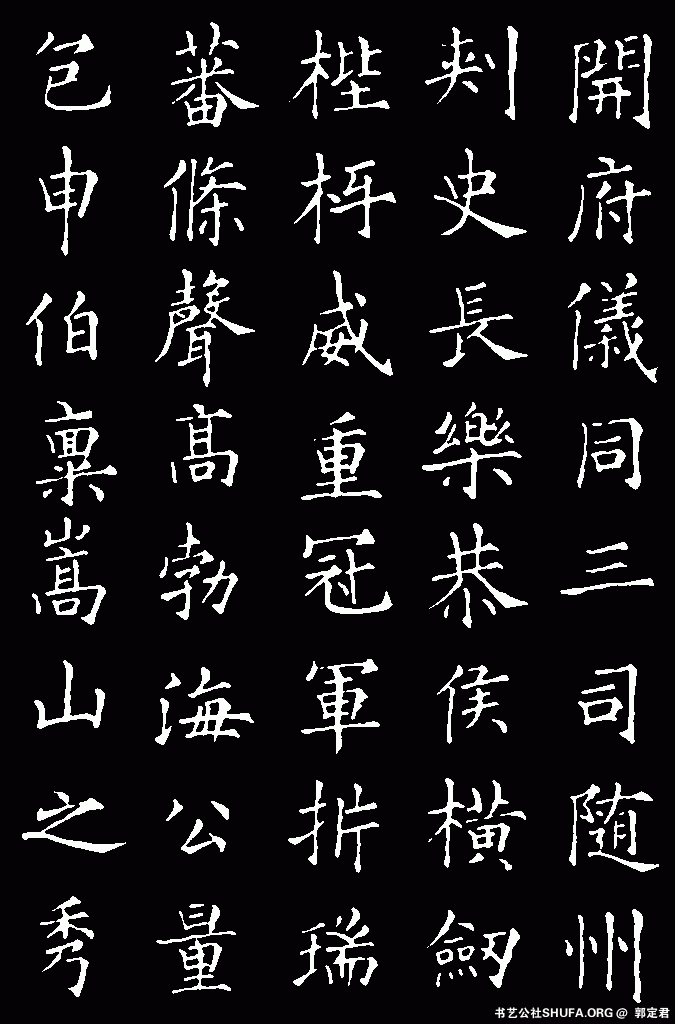 開府儀同三司随州
刾史長樂恭侯橫劒
梐枑威重冠軍折瑞
蕃條聲髙勃海公量
包申伯稟嵩山之秀
书艺公社SHUFA.ORG @ 郭定君